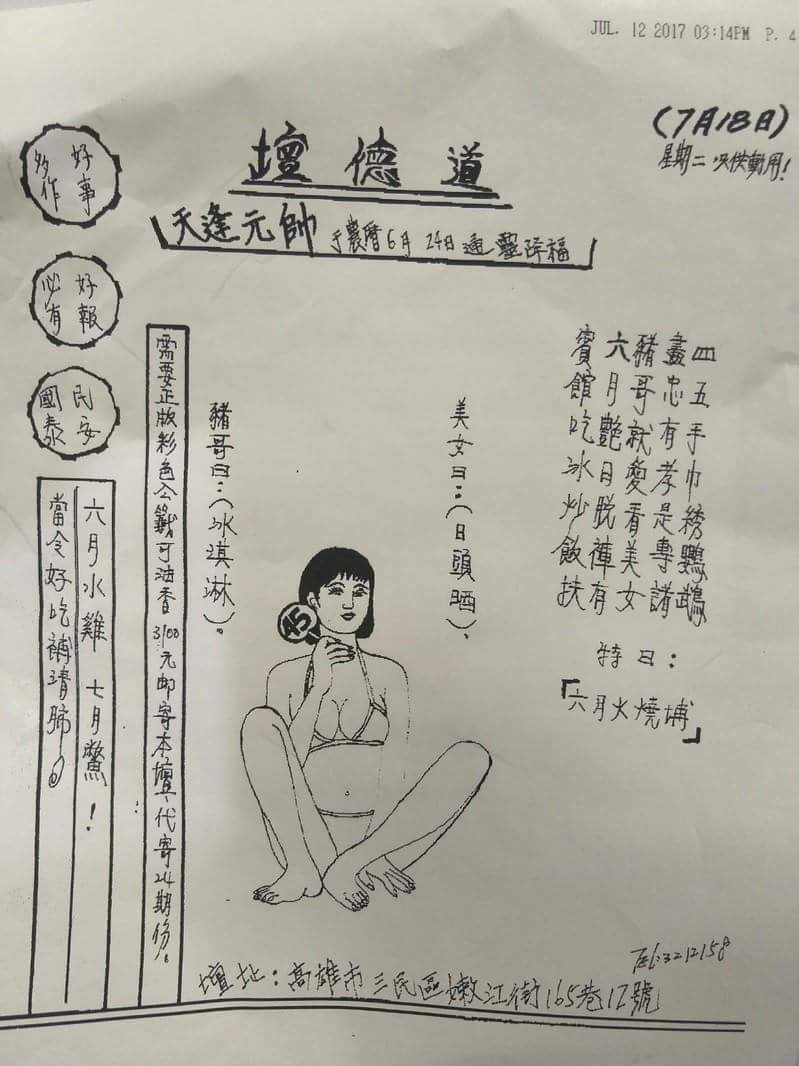 JUL. 12 2017 03:14PM P. 4
(7月18日)
星期二 只供動用!
壇德道
天逢元帥 于農曆6月24日通靈降福
四五手巾綉鸚鵡
盡忠有孝是專諸
豬哥就愛看美女
六月艷日脫褲有
賓館吃冰炒飯扶
特曰:
「六月火燒埔」
美女曰:(日頭晒)、
45
豬哥曰:(冰淇淋)。
需要正版彩色公籤可油香3100元邮寄本壇、代寄24期份。
好事
多作
好報
必有
民安
國泰
六月水雞 七月鱉!
當令好吃補清肺。
Tel:3212158
壇址:高雄市三民區嫩江街165巷12號